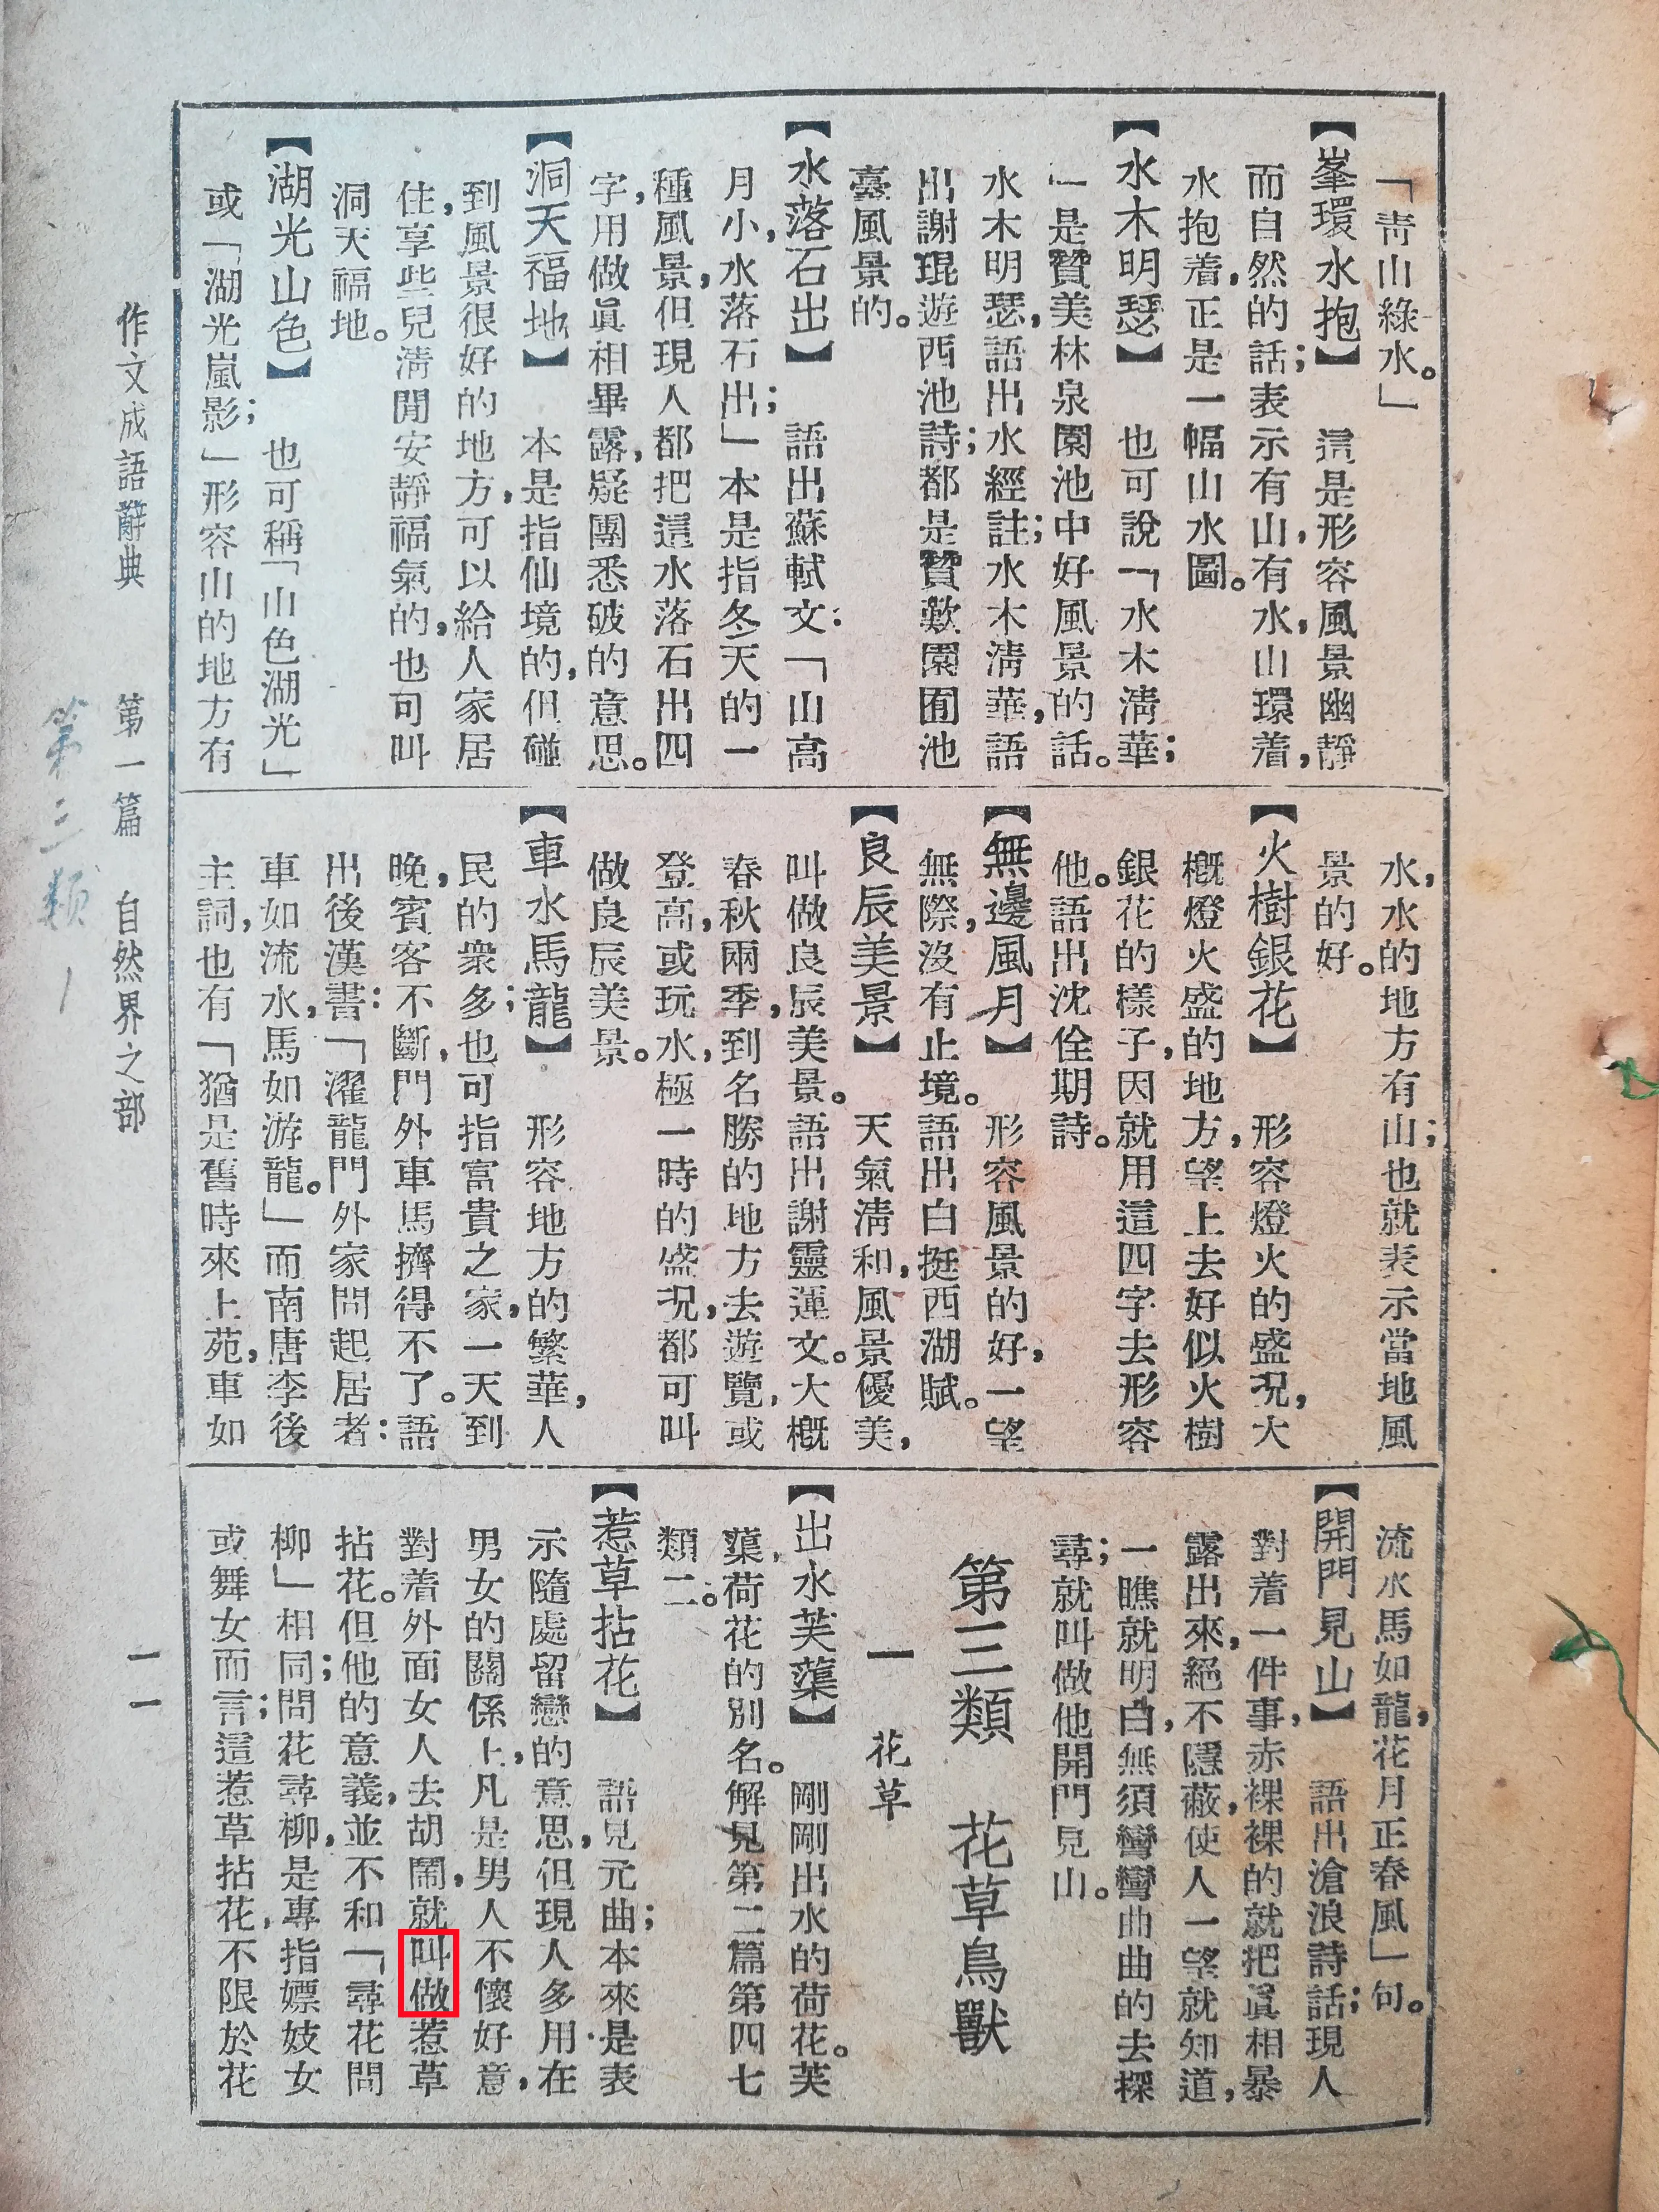 「靑山綠水。」
【峯環水抱】　這是形容風景幽靜
而自然的話；表示有山，有水，山環着，
水抱着，正是一幅山水圖。
【水木明瑟】　也可說「水木淸華；
」是贊美林泉園池中好風景的話。
水木明瑟，語出水經註；水木淸華，語
出謝琨遊西池詩；都是贊歎園囿池
臺風景的。
【水落石出】　語出蘇軾文：「山高
月小，水落石出；」本是指冬天的一
種風景，但現人都把這水落石出四
字，用做眞相畢露，疑團悉破的意思。
【洞天福地】　本是指仙境的，但碰
到風景很好的地方，可以給人家居
住，享些兒淸閒安靜福氣的，也可叫
洞天福地。
【湖光山色】　也可稱「山色湖光」
或「湖光嵐影；」形容山的地方有
水，水的地方有山；也就表示當地風
景的好。
【火樹銀花】　形容燈火的盛況，大
槪燈火盛的地方，望上去好似火樹
銀花的樣子，因就用這四字去形容
他。語出沈佺期詩。
【無邊風月】　形容風景的好，一望
無際，沒有止境。語出白挺西湖賦。
【良辰美景】　天氣淸和，風景優美，
叫做良辰美景。語出謝靈運文。大槪
春秋兩季，到名勝的地方去遊覽，或
登高，或玩水，極一時的盛況，都可叫
做良辰美景。
【車水馬龍】　形容地方的繁華，人
民的衆多；也可指富貴之家，一天到
晚，賓客不斷，門外車馬擠得不了。語
出後漢書：「濯龍門外家問起居者：
車如流水，馬如游龍。」而南唐李後
主詞，也有「猶是舊時來上苑，車如
流水馬如龍，花月正春風」句。
【開門見山】　語出滄浪詩話；現人
對着一件事，赤裸裸的就把眞相暴
露出來，絕不隱蔽，使人一望就知道，
一瞧就明白，無須彎彎曲曲的去探
尋；就叫做他開門見山。
第三類　花草鳥獸
一　花草
【出水芙蕖】　剛剛出水的荷花。芙
蕖，荷花的別名。解見第二篇第四七
類二。
【惹草拈花】　語見元曲；本來是表
示隨處留戀的意思，但現人多用在
男女的關係上，凡是男人不懷好意，
對着外面女人去胡鬧，就叫做惹草
拈花。但他的意義，並不和「尋花問
柳」相同；問花尋柳，是專指嫖妓女
或舞女而言；這惹草拈花，不限於花
作文成語辭典　第一篇　自然界之部
一一
第三類1